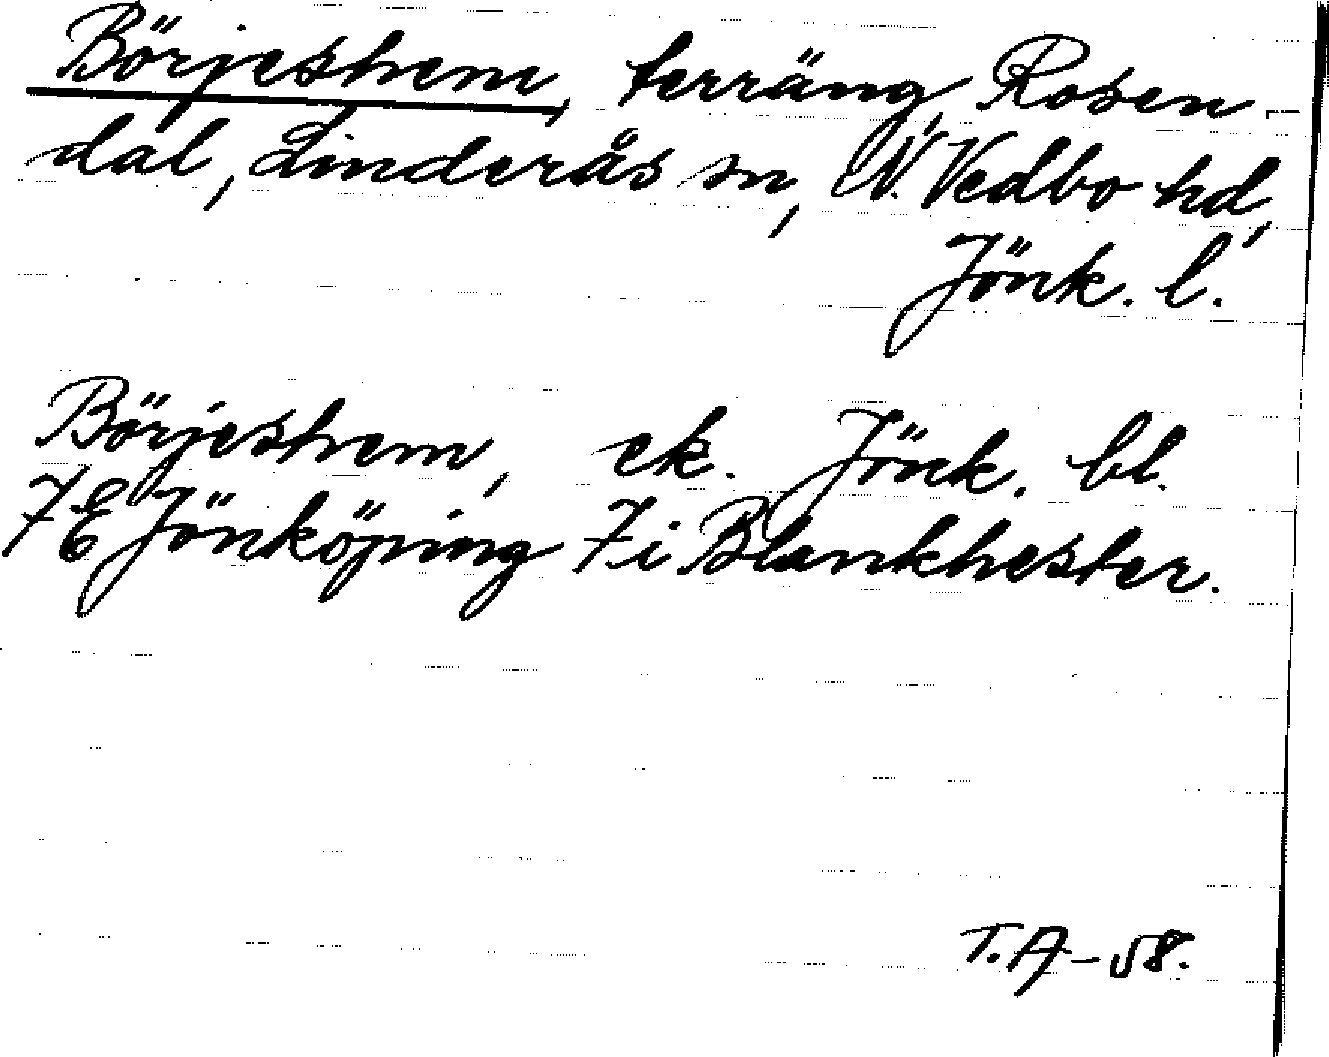 Börjeshem, terräng, Rosen-
dal, Linderås sn, N. Vedbo hd,
Jönk. l.
Börjeshem, ek. Jönk. bl.
7E Jönköping 7i Blankhester.
T.A-58.